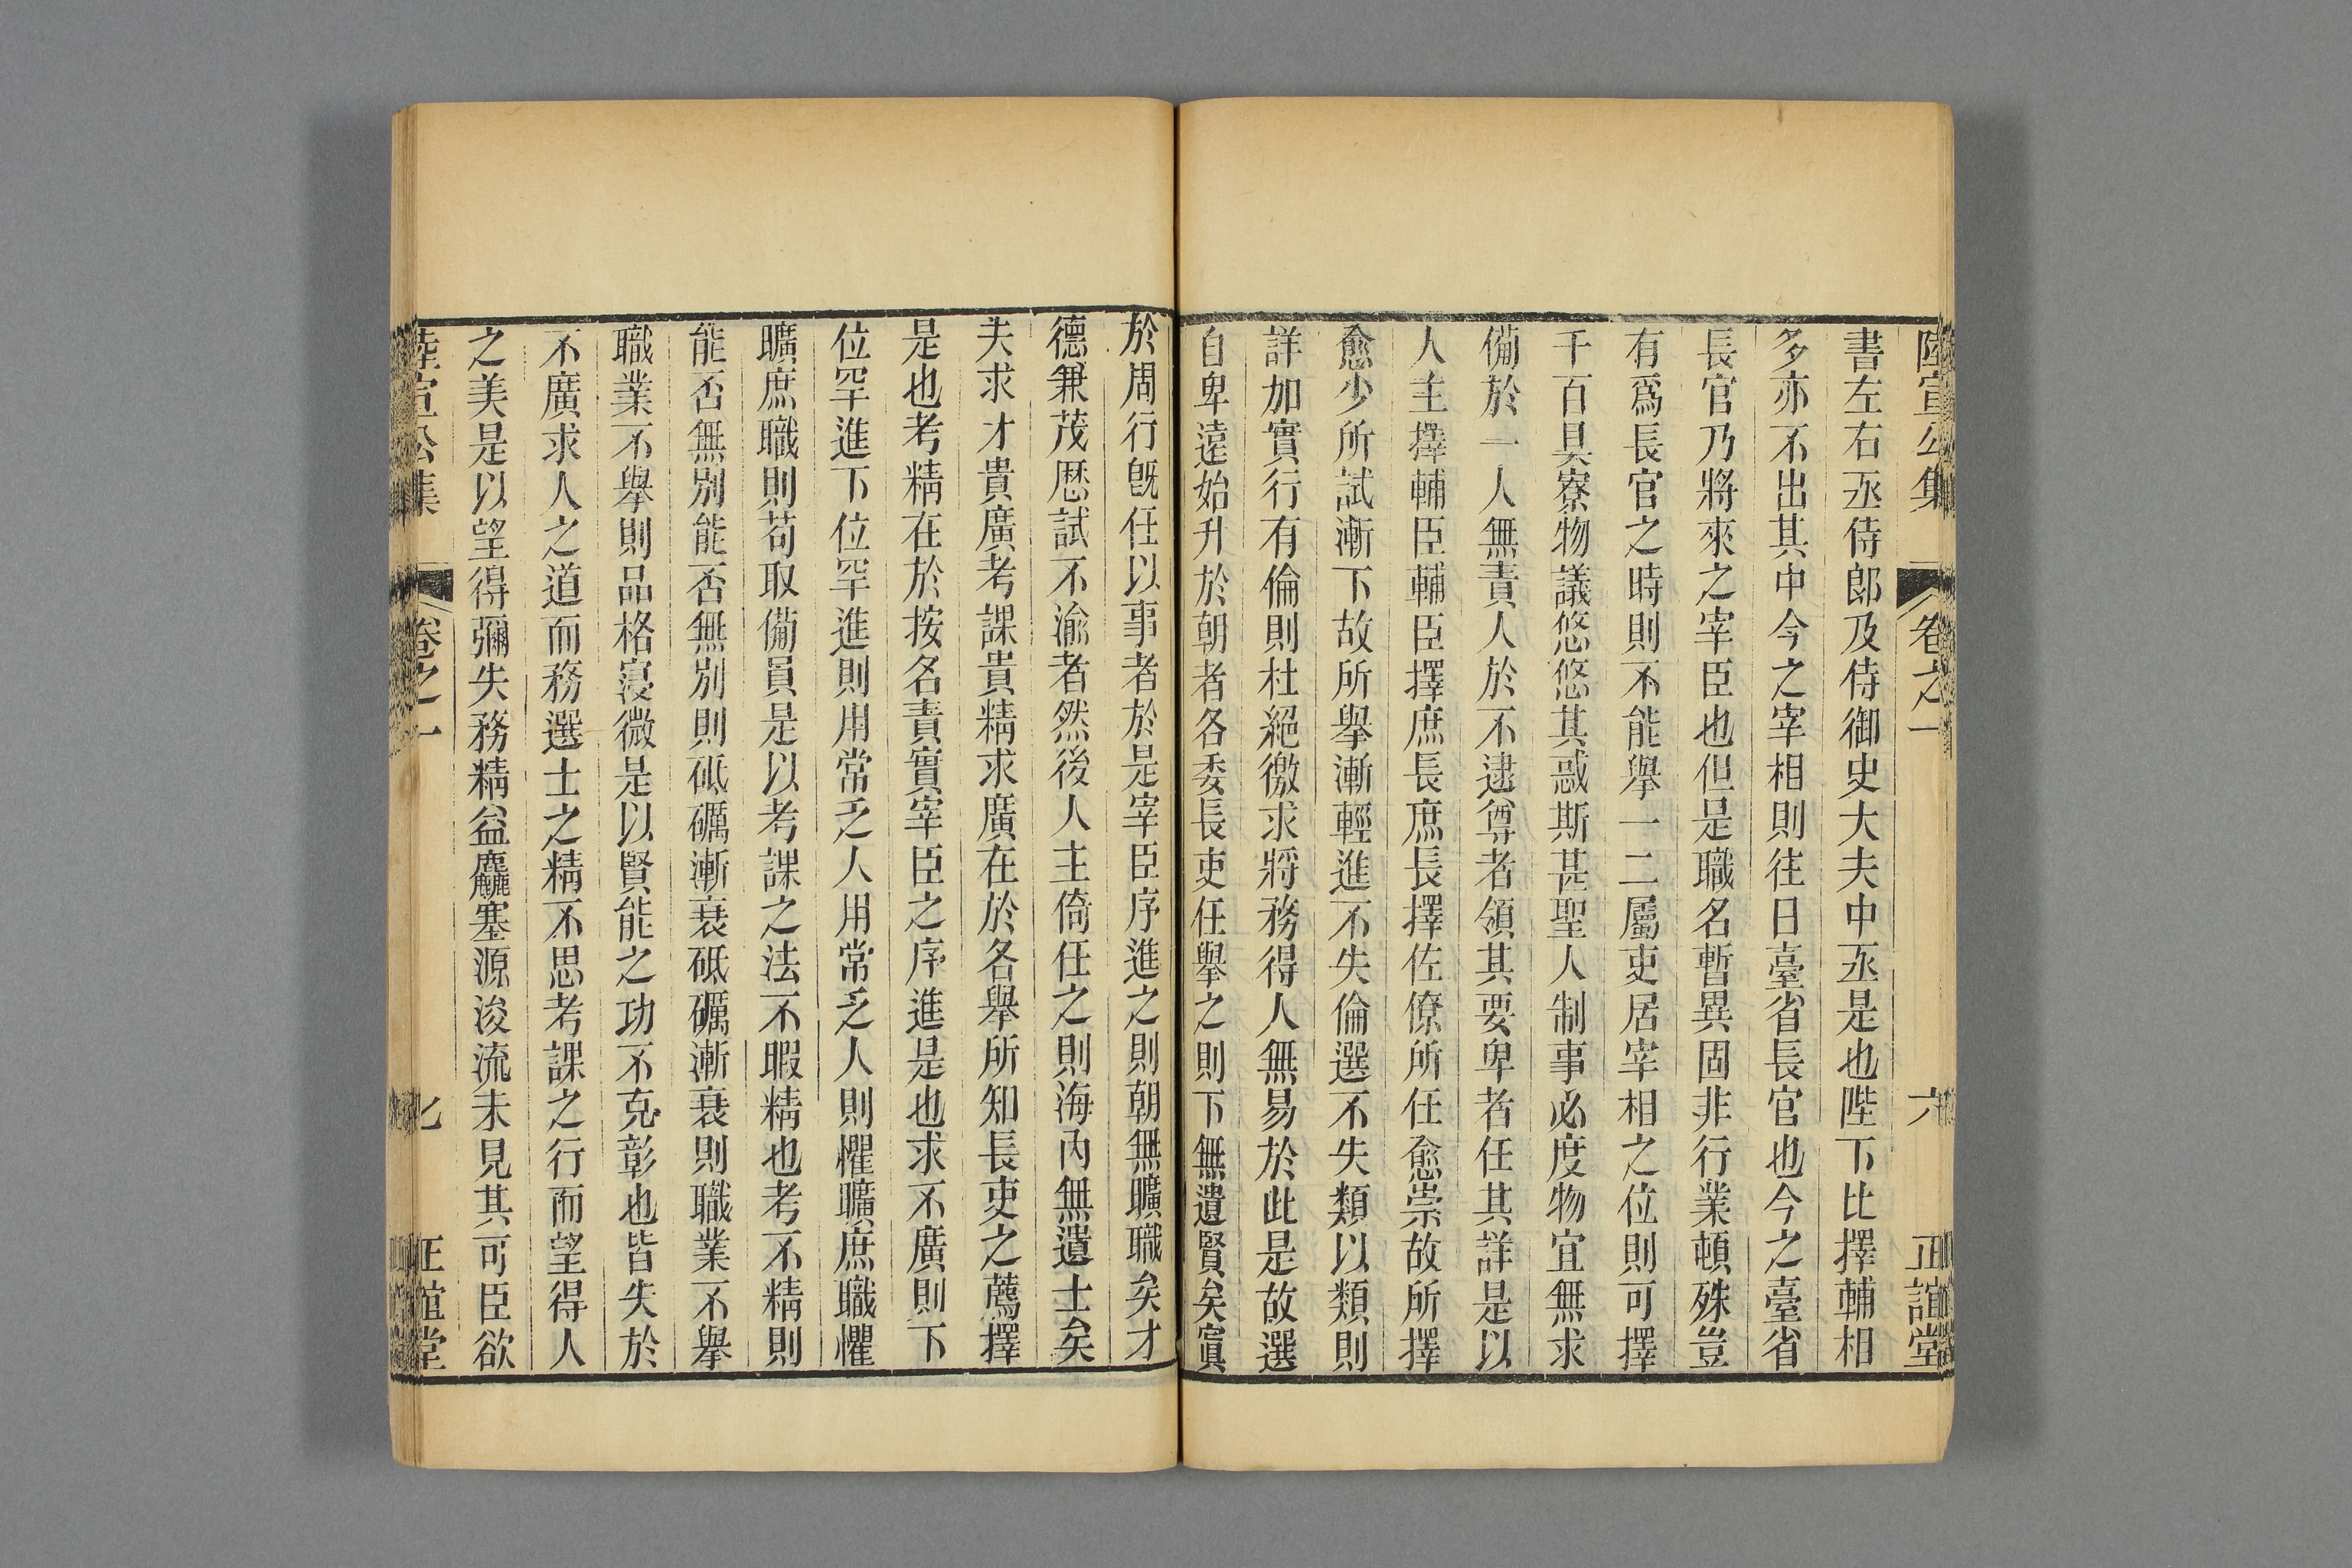 陸宣公集 卷之一 六 正誼堂
書左右丞侍郎及侍御史大夫中丞是也陛下比擇輔相
多亦不出其中今之宰相則往日臺省長官也今之臺省
長官乃將來之宰臣也但是職名暫異固非行業頓殊豈
有爲長官之時則不能舉一二屬吏居宰相之位則可擇
千百具寮物議悠悠其惑斯甚聖人制事必度物宜無求
備於一人無責人於不逮尊者領其要卑者任其詳是以
人主擇輔臣輔臣擇庶長庶長擇佐僚所任愈崇故所擇
愈少所試漸下故所舉漸輕進不失倫選不失類以類則
詳加實行有倫則杜絕徼求將務得人無易於此是故選
自卑遠始升於朝者各委長吏任舉之則下無遺賢矣寘
於周行旣任以事者於是宰臣序進之則朝無曠職矣才
德兼茂歷試不渝者然後人主倚任之則海內無遺士矣
夫求才貴廣考課貴精求廣在於各舉所知長吏之薦擇
是也考精在於按名責實宰臣之序進是也求不廣則下
位罕進下位罕進則用常乏人用常乏人則懼曠庶職懼
曠庶職則苟取備員是以考課之法不暇精也考不精則
能否無別能否無別則砥礪漸衰砥礪漸衰則職業不舉
職業不舉則品格寖微是以賢能之功不克彰也皆失於
不廣求人之道而務選士之精不思考課之行而望得人
之美是以望得彌失務精益麤塞源浚流未見其可臣欲
陸宣公集 卷之一 七 正誼堂